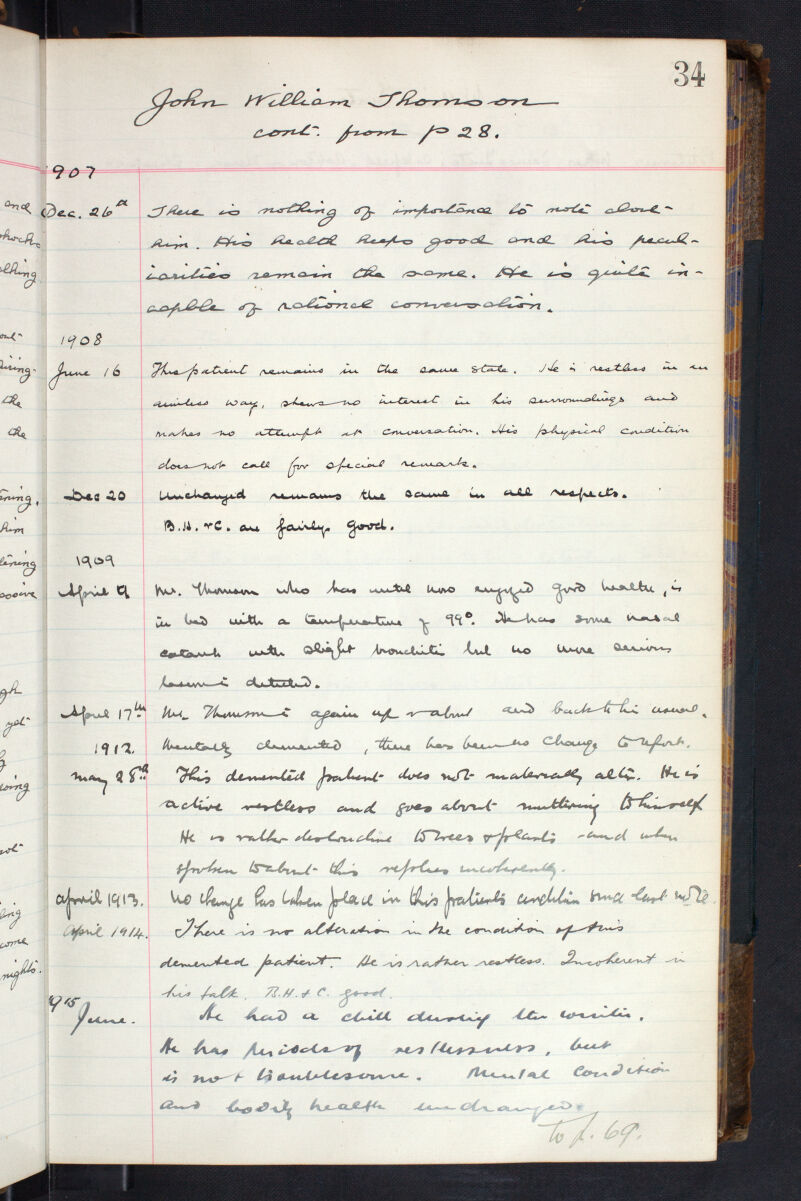 34
John William Thomson
cont. from p 28.
1907
Dec. 26th There is nothing of importance to note about
him. His health keeps good and his pecul-
iarities remain the same. He is quite in-
capble of rational conversation.
1908
June 16 This patient remains in the same state. He is restless in an
aimless way, shews no interest in his surroundings and
makes no attempt at conversation. His physical condition
does not call for special remark.
Dec 20 Unchanged remains the same in all respects.
B.H. & C. are fairly good.
1909
April 9 Mr. Thomson who has until now enjoyed good health, is
in bed with a temperature of 99°. He has some nasal
catarrh with slight bronchitis but no more serious
detected.
April 17th Mr. Thomson is again up & about and back to his usual.
1912. Mentally demented, there has been no change to report.
May 28th This demented patient does not materially alter. He is
active restless and goes about muttering to himself
He is rather destructive to trees & plants and when
spoken to about this replies incoherently.
April 1913. No change has taken place in this patients condition since last note.
April 1914. There is no alteration in the condition of this
demented patient. He is rather restless. Incoherent in
his talk. B.H. & C. good.
1915
June. He had a chill during the
He has periods of restlessness, but
is not troublesome. Mental condition
and bodily health unchanged.
To p. 69.
and
shocks
thing
the
the
him
gh
yet
some
nights.